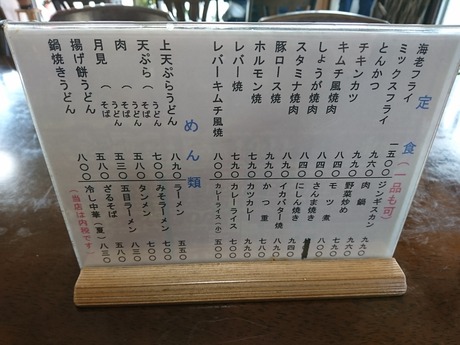 定食(一品も可)
海老フライ 一五〇〇
ミックスフライ 九六〇
とんかつ
チキンカツ 八四〇
キムチ風焼肉 八四〇
しょうが焼肉 八四〇
スタミナ焼肉 八〇〇
豚ロース焼
ホルモン焼 七九〇
レバー焼 七九〇
レバーキムチ風焼 八〇〇
ジンギスカン 九九〇
肉鍋 九九〇
野菜炒め 七九〇
モツ煮
さんま焼き
にしん焼き 九四〇
イカバター焼 七九〇
かつ重 九〇〇
カツカレー 九〇〇
カレーライス 七〇〇
カレーライス(小) 五〇〇
めん類
上天ぷらうどん 八九〇
天ぷら(うどん そば 七〇〇
肉(うどん そば 八五〇
月見(うどん そば 五三〇
揚げ餅うどん 七〇〇
鍋焼きうどん 八〇〇
ラーメン 五五〇
みそラーメン 七〇〇
タンメン 七〇〇
五目ラーメン 八〇〇
ざるそば 五八〇
冷し中華(夏) 八三〇
(当店は内税です)